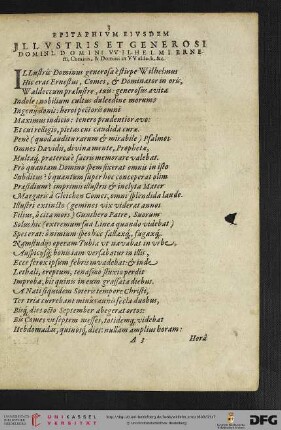 EPITAPHIVM EIVSDEM
ILLVSTRIS ET GENEROSI
DOMINI, DOMINI WILHELMI ERNE-
sti, Comitis, & Domini in VValdeck, &c.
ILLustris Dominus generosa è stirpe Wilhelmus
Hic erat Ernestus, Comes, & Dominator in oris,
Waldeccum præ lustre, sui: generosus ævita
Indole, nobilium cultus dulcedine morum
Ingenij donis: heroi pectoris omni
Maximus indicio: tenero prudentior ævo:
Et cui religio, pietas cui candida curæ.
Penè (quod auditu rarum & mirabile) Psalmos
Omnes Davidis, divina mente, Prophetæ,
Multaq́, præterea sacra memorare valebat.
Pro quantam Domino spem fecerat omnis in isto
Subditus? ô quantum super hoc conceperat olim
Præsidium? imprimis illustris & inclyta Mater
Margaris à Gleichen Comes, omni splendida laude.
Illustri extincto (geminos vix viderat annos
Filius, ô cita mors) Gunthero Patre, Suorum
Solus hic (extremum sua Linea quando videbat)
Spes erat: ô nimium spes hæc fallaxq́, fugaxq́.
Namq́
Auspicijsq́, bonis iam versabatur in illis:
Ecce ferox ipsum febris invadebat: & inde
Lethali, ereptum, tenuisvo
Improba, bis quinis in eum grassata diebus.
A Nati siquidem Soteris tempore Christi,
Ter tria currebant minus annis secla duobus,
Bisq́, dies octo September abegerat ortos:
Bis Comes viserperis messes, totidemq́, videbat
Hebdomadas, quinosq́, dies: nullam amplius horam:
A 3 Horâ
UNIKASSEL
VERSITÄT
DFG